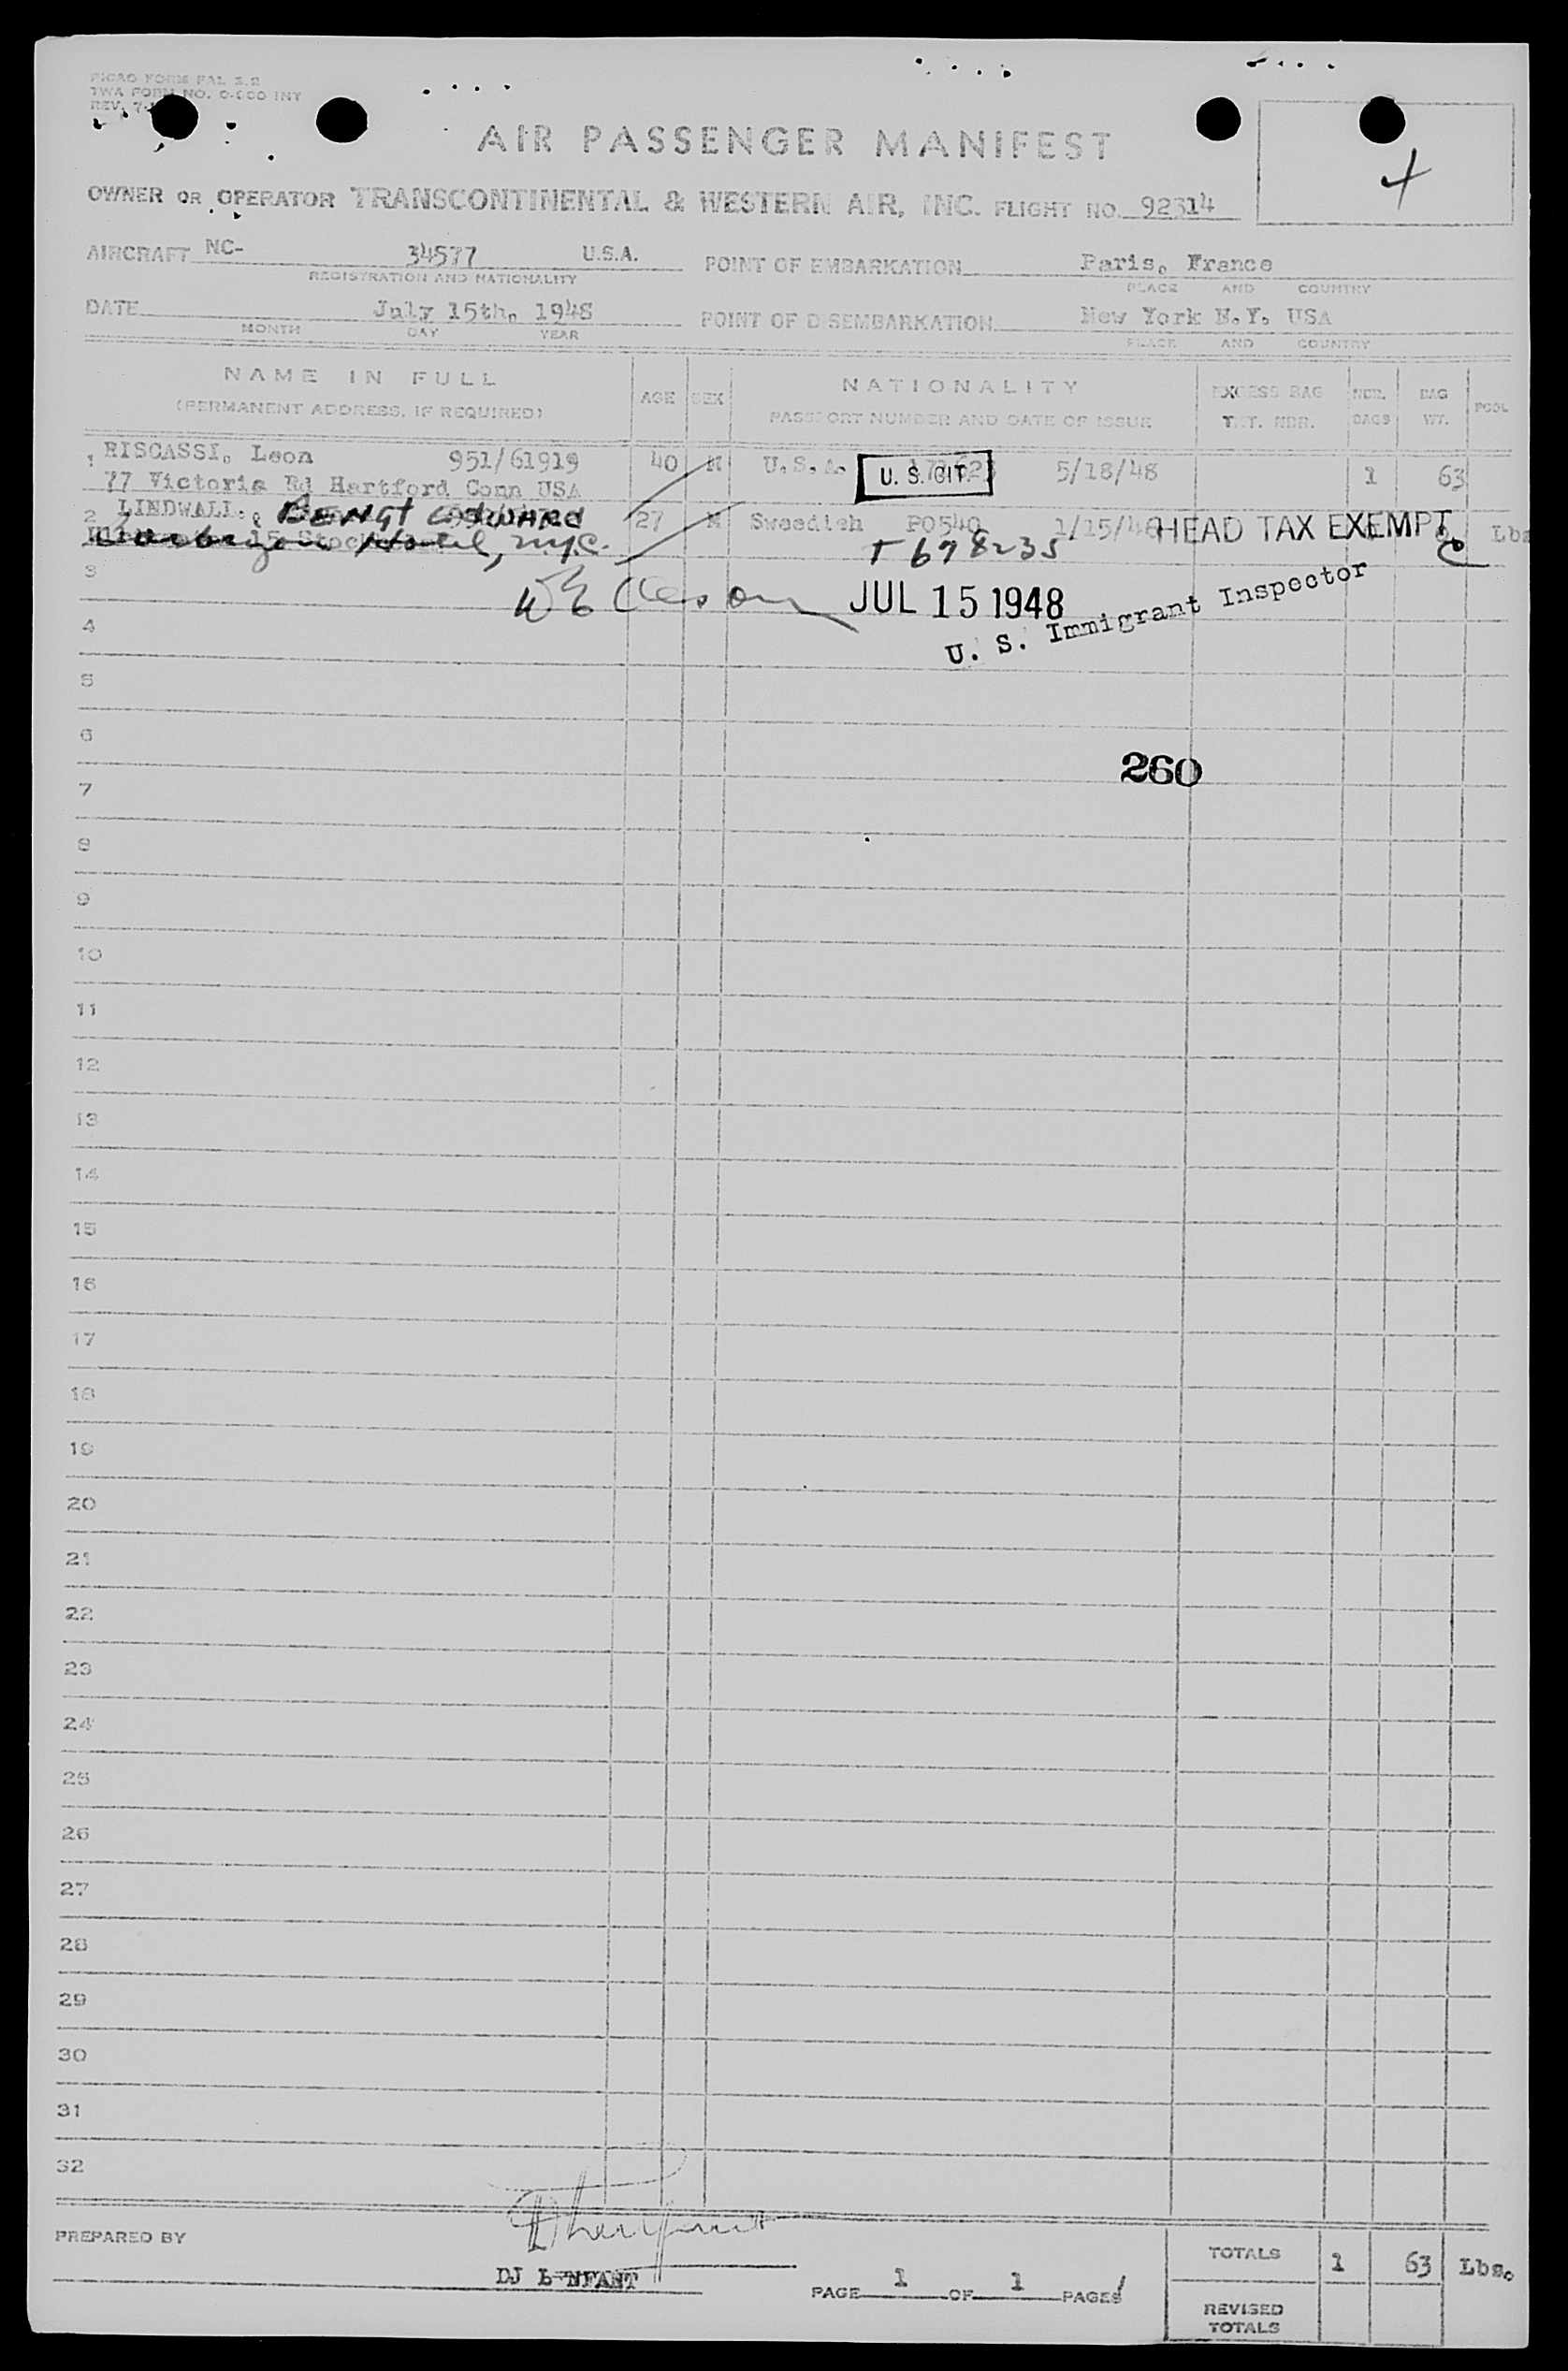 PICAO FORM FAL 3.2
TWA FORM NO. O-600 INT
REV. 7-
AIR PASSENGER MANIFEST
4
OWNER OR OPERATOR TRANSCONTINENTAL & WESTERN AIR, INC. FLIGHT NO. 92314
AIRCRAFT NC- 34577 U.S.A. POINT OF EMBARKATION Paris, France
REGISTRATION AND NATIONALITY PLACE AND COUNTRY
DATE July 15th, 1948 POINT OF DISEMBARKATION New York N.Y. USA
MONTH DAY YEAR PLACE AND COUNTRY
NAME IN FULL AGE SEX NATIONALITY EXCESS BAG NBR. BAG POOL
(PERMANENT ADDRESS, IF REQUIRED) PASSPORT NUMBER AND DATE OF ISSUE TKT. NBR. BAGS WT.
1 RISCASSI, Leon 951/61919 40 M U.S.A. U. S. CIT. 5/18/48 1 63
77 Victoria Rd Hartford Conn USA
2 LINDWALL, BENGT EDWARD 27 M Swedish PO540 1/15/48 HEAD TAX EXEMPT Lbs
Barbizon Hotel, N.Y.C. T 698235
3 JUL 15 1948
U. S. Immigrant Inspector
4
5
6
260
7
8
9
10
11
12
13
14
15
16
17
18
19
20
21
22
23
24
25
26
27
28
29
30
31
32
PREPARED BY
DJ L'ENFANT
PAGE 1 OF 1 PAGES
TOTALS 1 63 Lbs.
REVISED
TOTALS